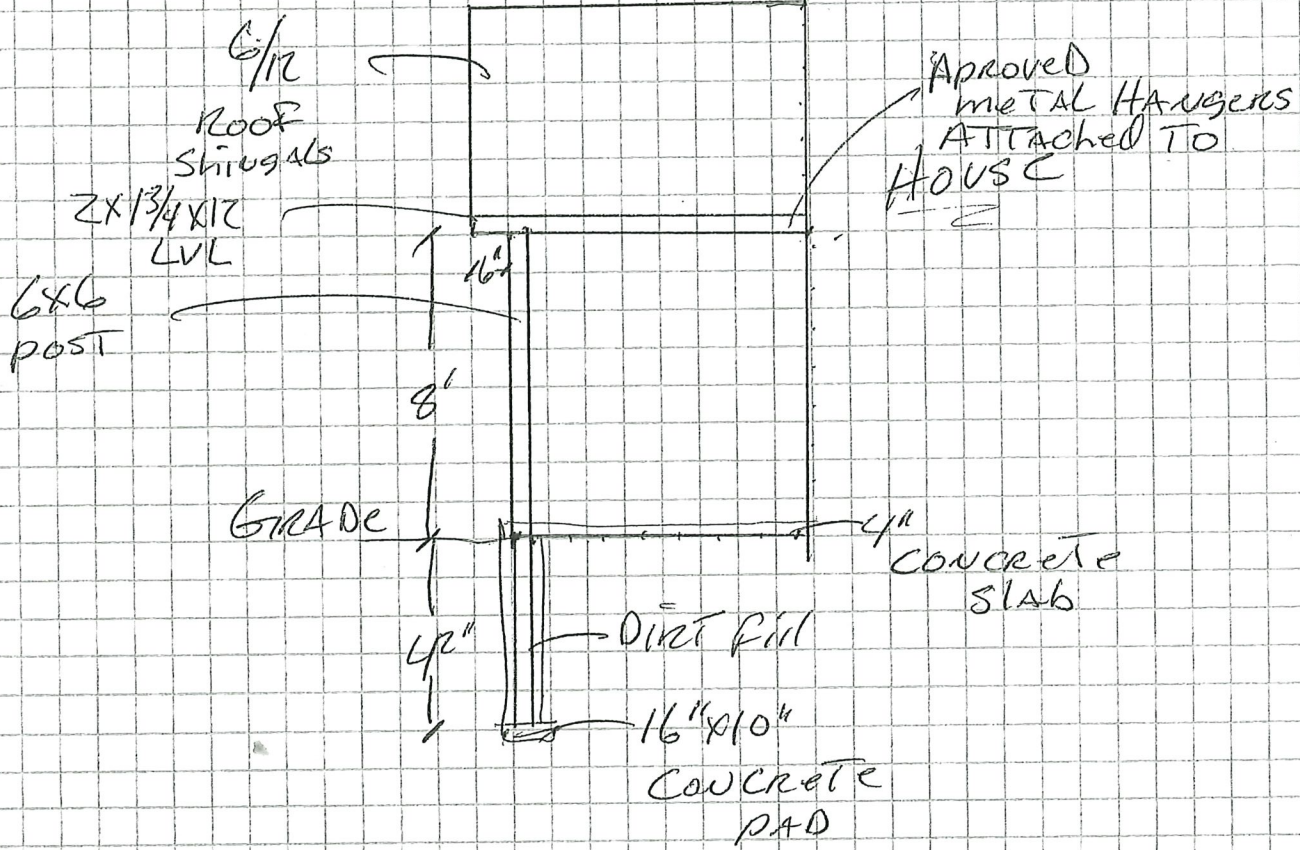 6/12
ROOF
Shingals
2x1 3/4 x12
LVL
6x6
POST
16"
8'
GRADE
42"
APROVED
METAL HANgERS
ATTAChed TO
HOUSE
4"
CONCRETE
SlAb
DIRT Fill
16"x10"
CONCRETE
PAD